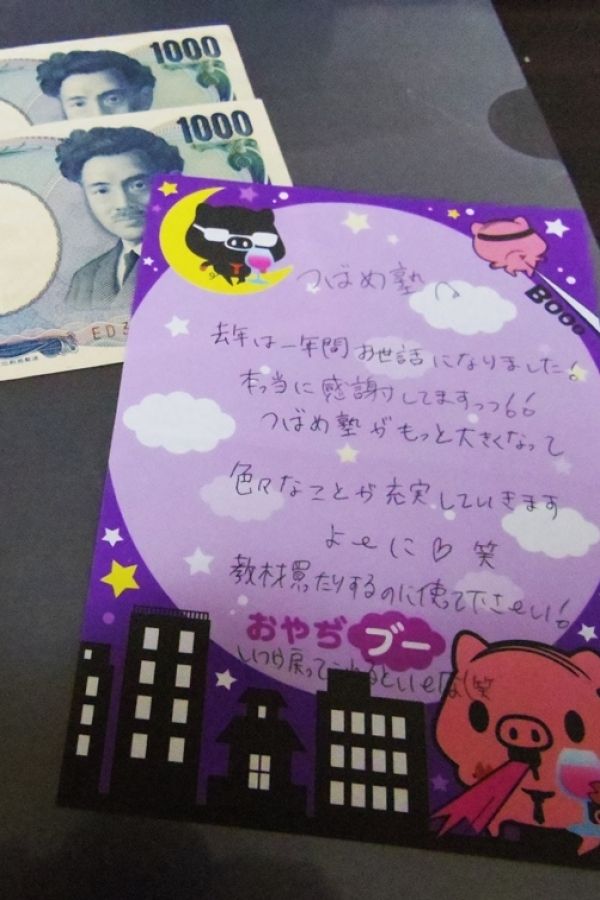 1000
1000
つばめ塾へ
Booo
去年は一年間お世話になりました!
本当に感謝してますっっ66
つばめ塾がもっと大きくなって
色々なことが充実していきます
よーに♡笑
教材買たりするのに使て下さーい!
おやぢブー
いつか戻ってこれるといーな(笑